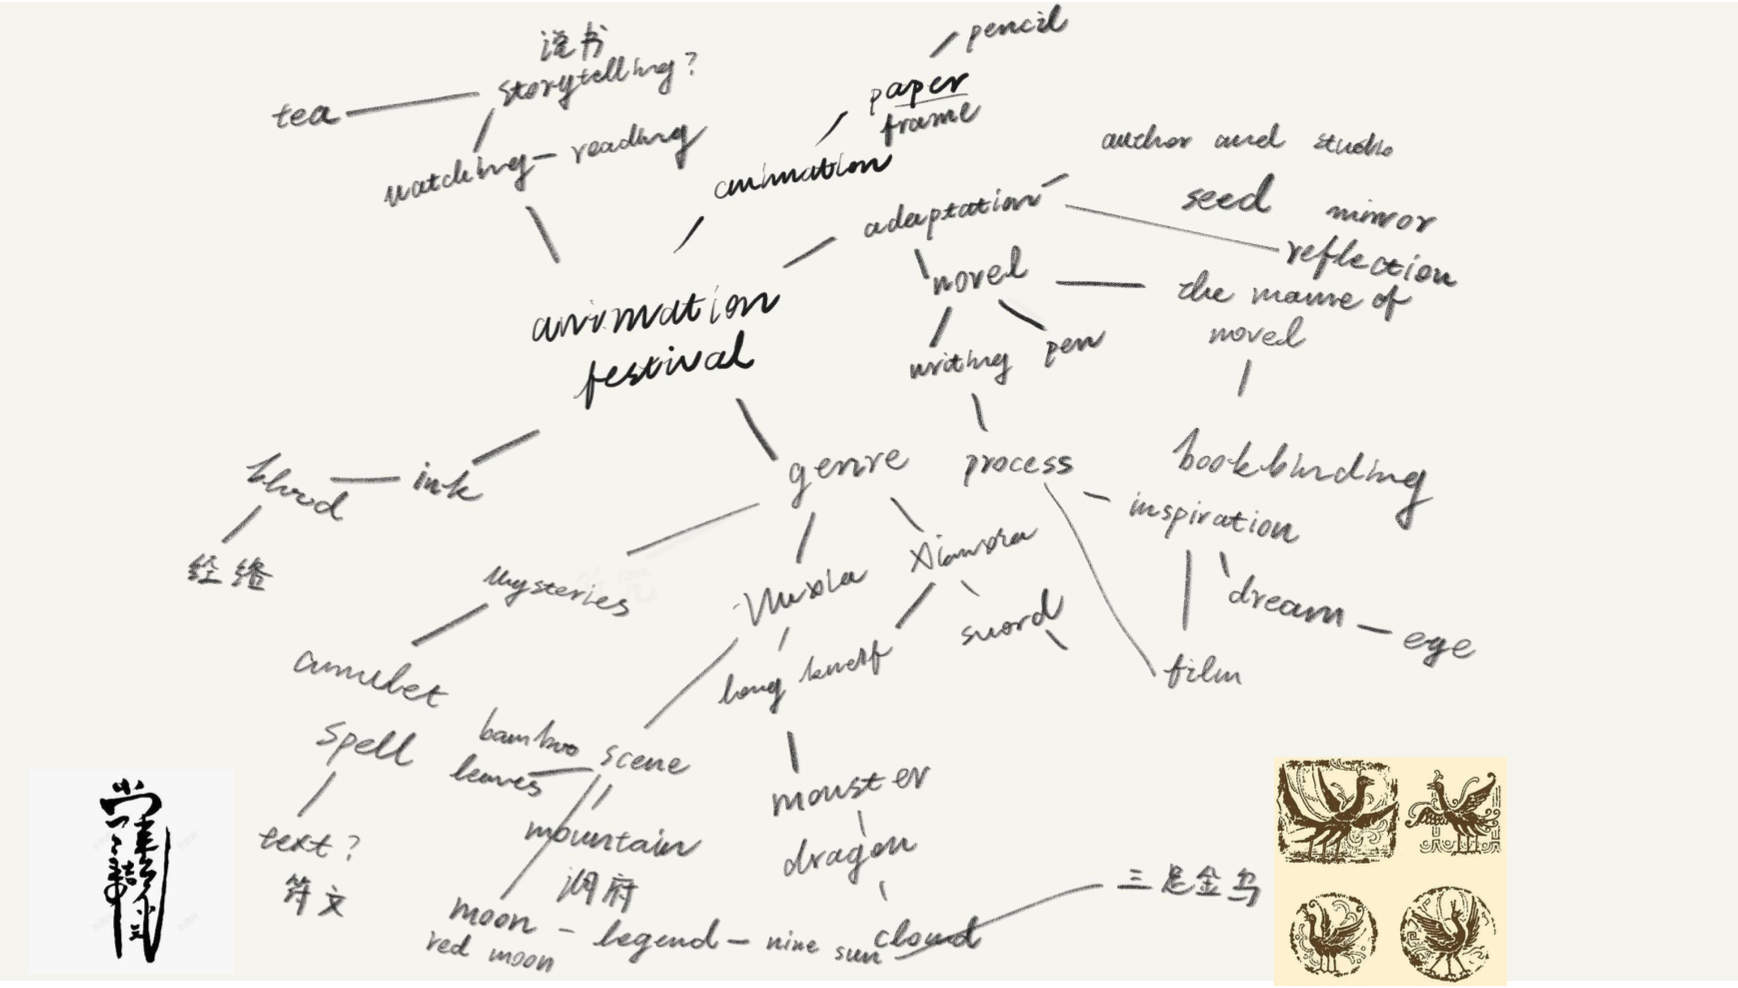 说书
storytelling?
tea
watching - reading
pencil
paper
frame
animation
author and studio
adaptation
seed
mirror
reflection
novel
the name of
novel
writing
pen
animation
festival
process
bookbinding
inspiration
dream - eye
film
blood
ink
经络
genre
mysteries
Wuxia
Xianxia
sword
long
amulet
spell
text?
符文
bamboo
leaves
scene
mountain
洞府
moon - legend - nine sun
red moon
monster
dragon
cloud
三足金乌